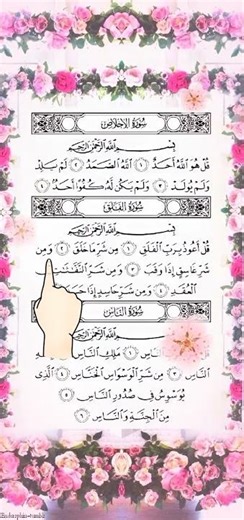 سُورَةُ الإِخْلَاصِ
بِسْمِ اللَّهِ الرَّحْمَٰنِ الرَّحِيمِ
قُلْ هُوَ اللَّهُ أَحَدٌ ١ اللَّهُ الصَّمَدُ ٢ لَمْ يَلِدْ
وَلَمْ يُولَدْ ٣ وَلَمْ يَكُن لَّهُ كُفُوًا أَحَدٌ ٤
سُورَةُ الفَلَقِ
بِسْمِ اللَّهِ الرَّحْمَٰنِ الرَّحِيمِ
قُلْ أَعُوذُ بِرَبِّ الْفَلَقِ ١ مِن شَرِّ مَا خَلَقَ ٢ وَمِن
شَرِّ غَاسِقٍ إِذَا وَقَبَ ٣ وَمِن شَرِّ النَّفَّاثَاتِ
الْعُقَدِ ٤ وَمِن شَرِّ حَاسِدٍ إِذَا حَسَدَ
سُورَةُ النَّاسِ
اللَّهِ الرَّحْمَٰنِ الرَّحِيمِ
النَّاسِ ١ مَلِكِ النَّاسِ
النَّاسِ ٣ مِن شَرِّ الْوَسْوَاسِ الْخَنَّاسِ ٤ الَّذِي
يُوَسْوِسُ فِي صُدُورِ النَّاسِ ٥
مِنَ الْجِنَّةِ وَالنَّاسِ ٦